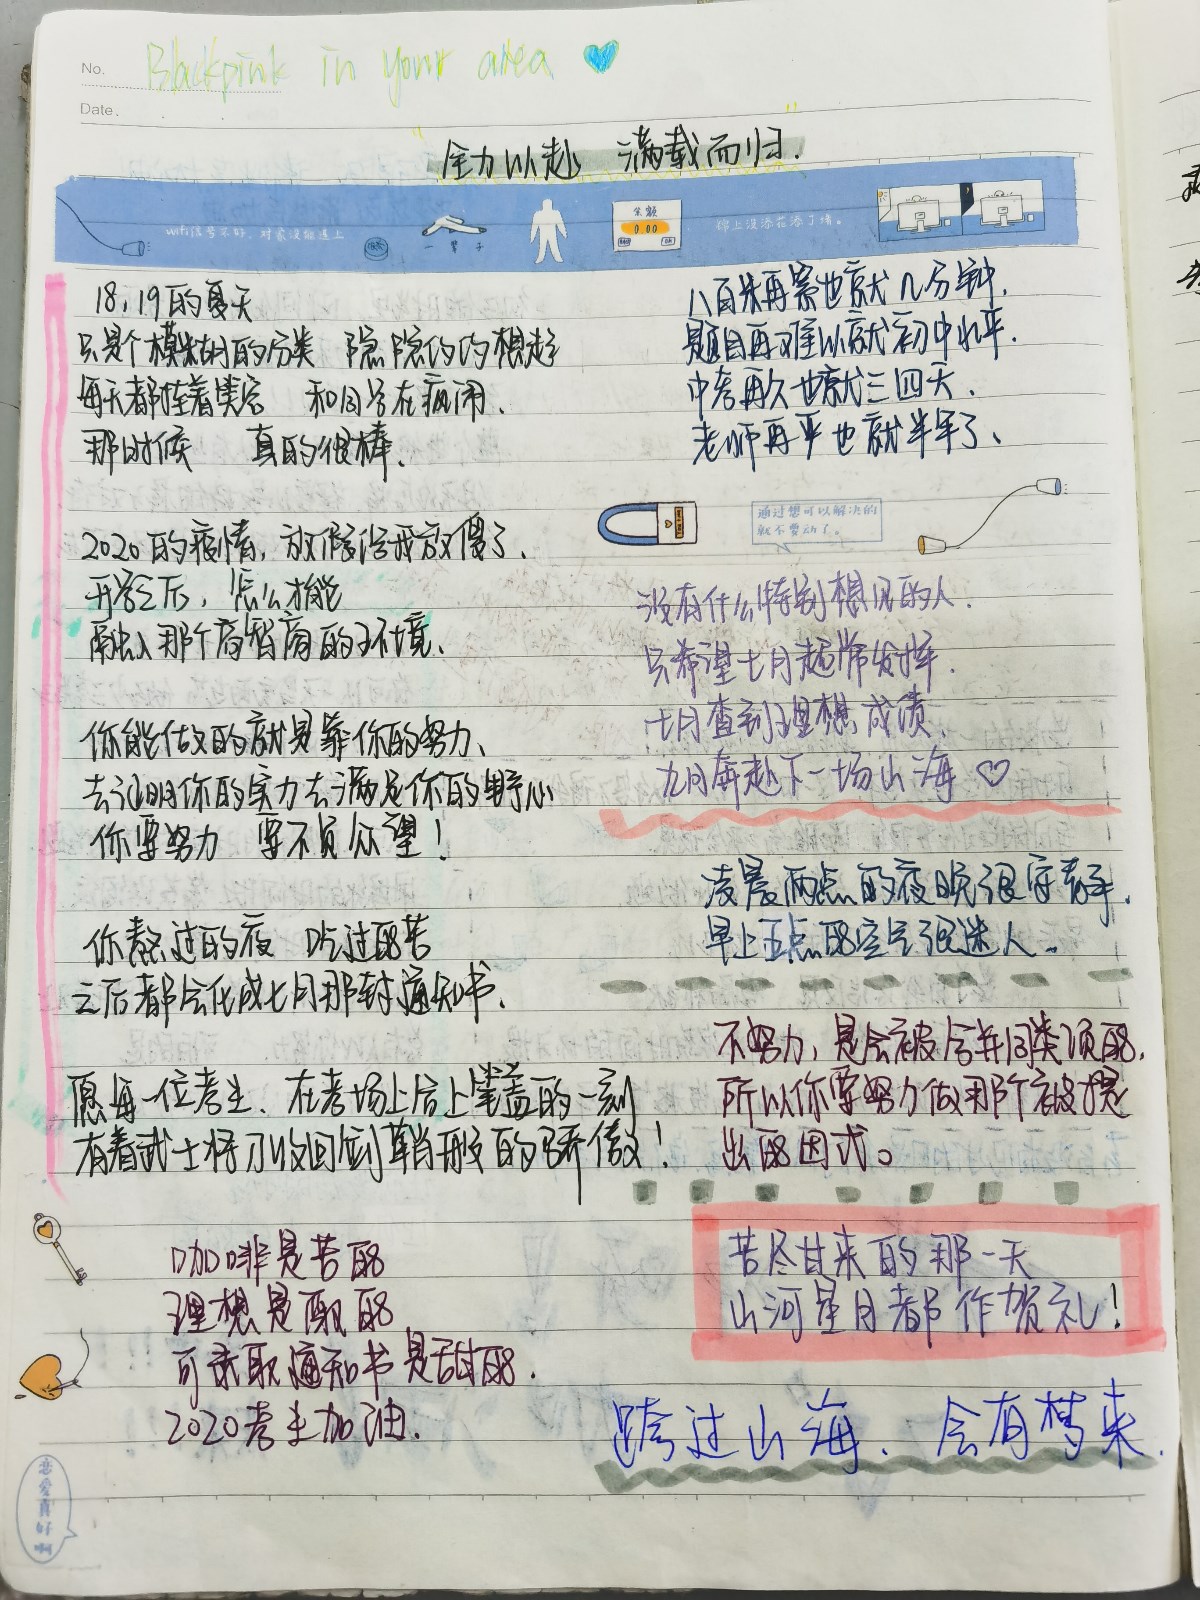 No.
Blackpink in your area
Date.
"全力以赴 满载而归."
wifi信号不好,对象没能连上
一辈子
余额
0.00
锦上没添花添了堵。
18,19的夏天
只是个模糊的分类 隐隐约约想起
每天都挂着笑容 和同学在疯闹.
那时候 真的很棒.
2020的疫情,放假给我放傻了.
开学之后,怎么才能
融入那个高智商的环境.
你能做的就是靠你的努力、
去证明你的实力去满足你的野心
你要努力 要不负众望!
你熬过的夜 吃过的苦
之后都会化成七月那封通知书.
愿每一位考生、在考场上合上笔盖的一刻
有着武士将刀收回剑鞘般的骄傲!
咖啡是苦的
理想是酸的
可录取通知书是甜的.
2020考生加油.
恋爱真好啊
八百米再累也就几分钟.
题目再难以就初中水平.
中考再久也就三四天.
老师再严也就半年了、
通过想可以解决的
就不要动了。
没有什么特别想见的人.
只希望七月超常发挥.
七月查到理想成绩.
九月奔赴下一场山海
凌晨两点的夜晚很安静.
早上五点的空气很迷人.
不努力,是会被合并同类项的.
所以你要努力做那个被提
出的因式。
苦尽甘来的那一天
山河星月都作贺礼!
跨过山海、会有梦来.